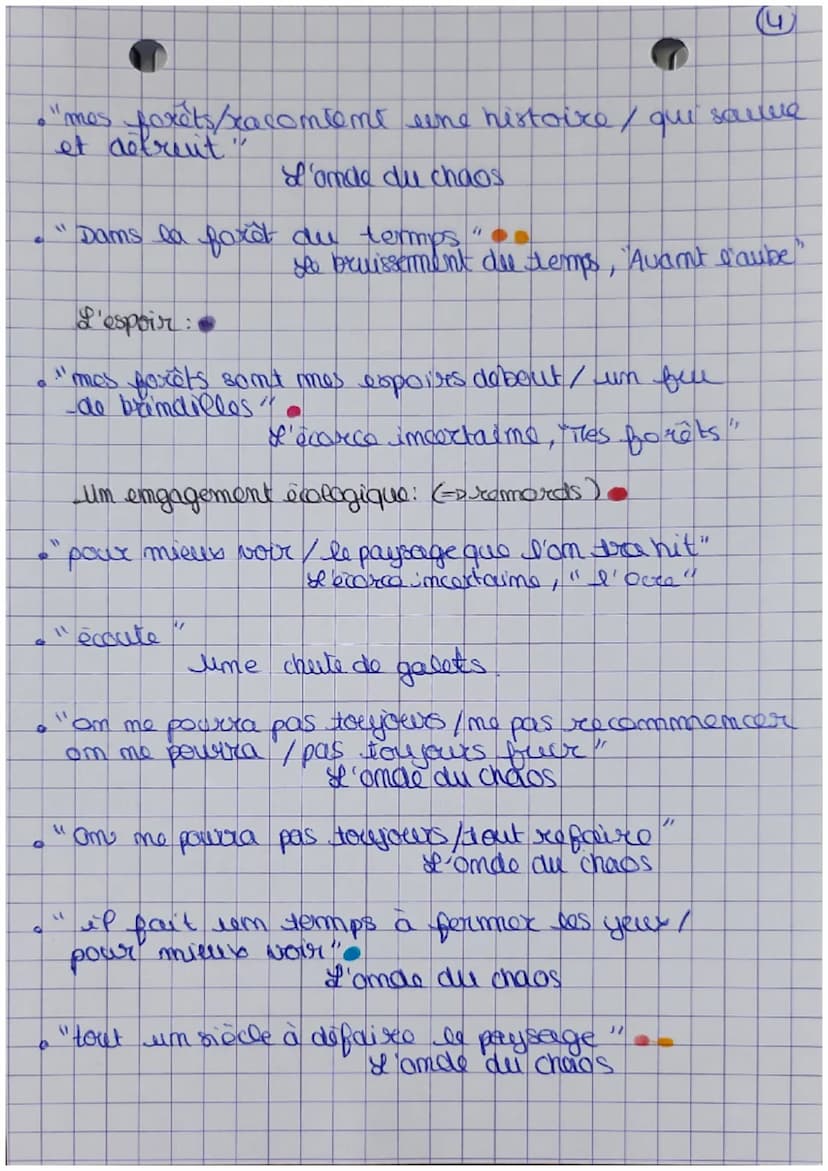 4
• "mes forêts/racontent une histoire / qui sauve
et détruit"
L'onde du chaos
• "Dans la forêt du temps"
Le bruissement du temps, "Avant l'aube"
L'espoir :
• "mes forêts sont mes espoires debout / un feu
de brindilles"
L'écorce incertaine, "Mes forêts"
Un engagement écologique: (=> remords)
• "pour mieux voir / le paysage que l'on trahit"
L'écorce incertaine, "L'ocre"
• "écoute"
Une chute de galets.
• "on ne pourra pas toujours / ne pas recommmencer
on ne pourra / pas toujours fuir"
L'onde du chaos
• "On ne pourra pas toujours / tout refaire"
L'onde du chaos
• "il fait un temps à fermer les yeux /
pour mieux voir"
L'onde du chaos
• "tout un siècle à défaire le paysage"
L'onde du chaos